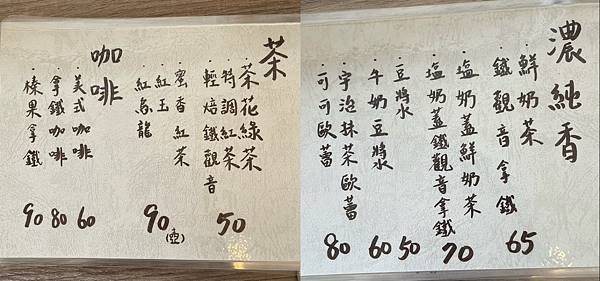 茶
茶花綠茶
特調紅茶
輕焙鐵觀音
50
·蜜香紅茶
·紅玉
·紅烏龍
90
(壺)
咖啡
·美式咖啡
60
·拿鐵咖啡
80
·榛果拿鐵
90
濃純香
·鮮奶茶
·鐵觀音拿鐵
65
·塩奶蓋鮮奶茶
·塩奶蓋鐵觀音拿鐵
70
·豆漿
50
·牛奶豆漿
60
·宇治抹茶歐蕾
·可可歐蕾
80